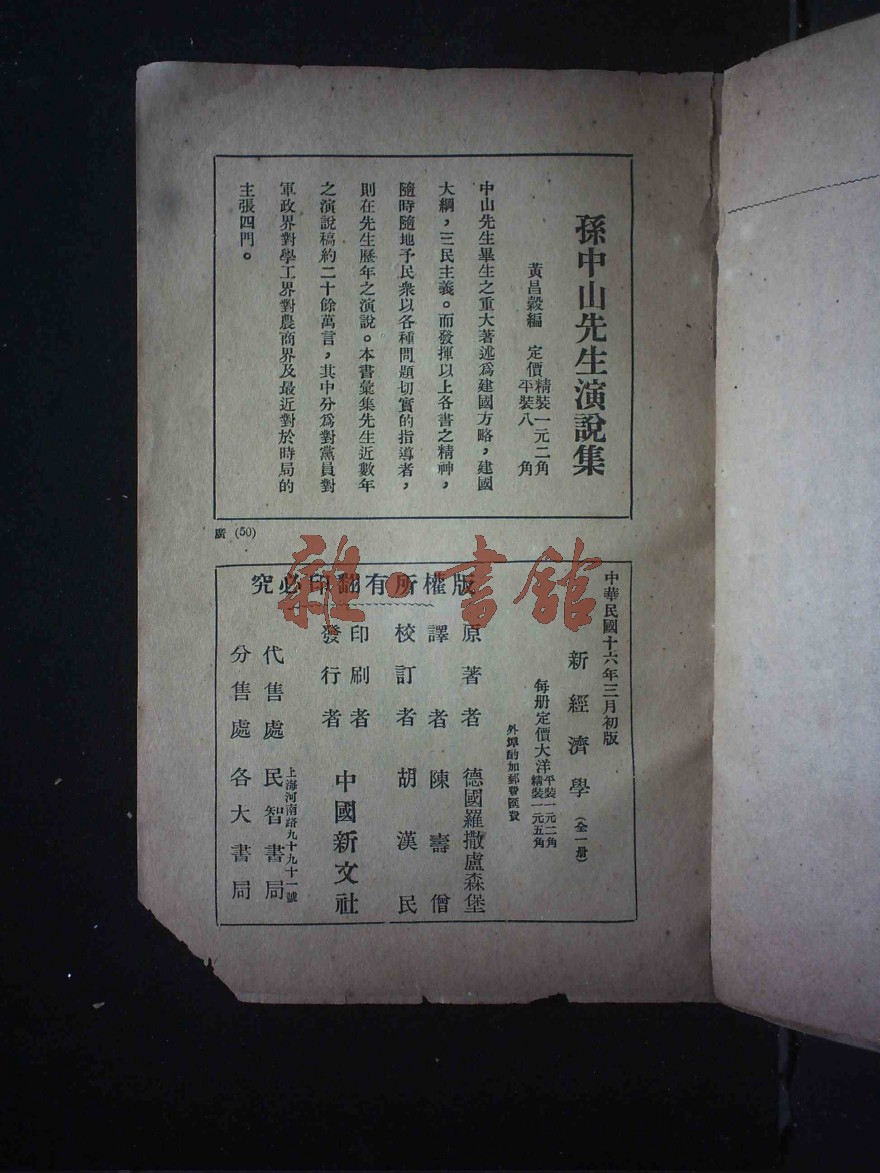 孫中山先生演說集
黃昌穀編 定價精裝一元二角
平裝八角
中山先生畢生之重大著述爲建國方略，建國
大綱，三民主義。而發揮以上各書之精神，
隨時隨地予民衆以各種問題切實的指導者，
則在先生歷年之演說。本書彙集先生近數年
之演說稿約二十餘萬言，其中分爲對黨員對
軍政界對學工界對農商界及最近對於時局的
主張四門。
廣 (50)
中華民國十六年三月初版
新經濟學（全一册）
每册定價大洋平裝一元二角
精裝一元五角
外埠酌加郵費匯費
版權所有翻印必究
原著者 德國羅撒盧森堡
譯者 陳壽僧
校訂者 胡漢民
印刷者
發行者 中國新文社
上海河南路九十九十一號
代售處 民智書局
分售處 各大書局
雜·書館